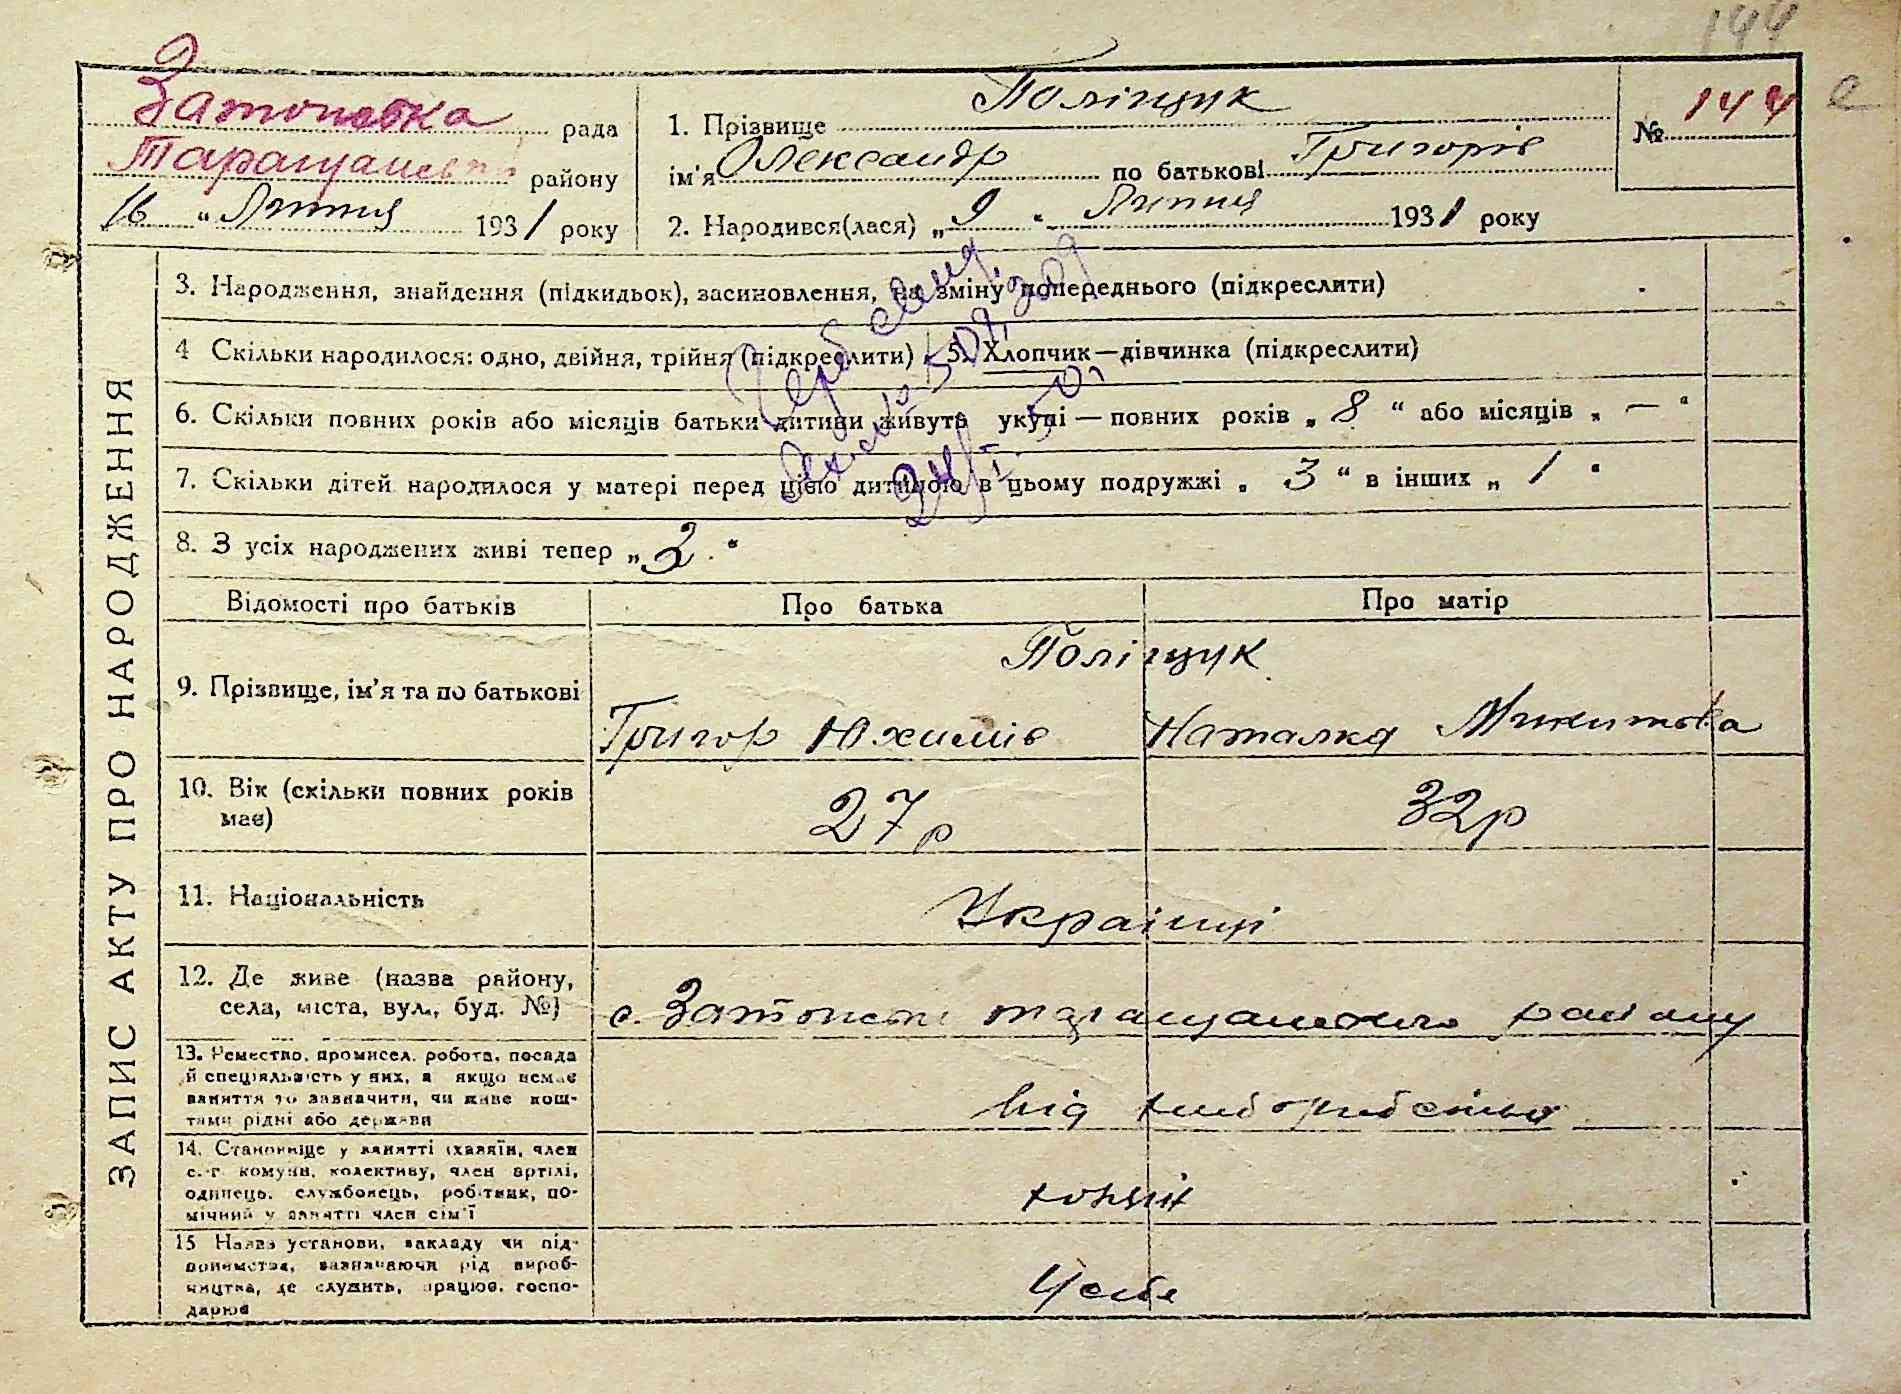 144
Затонська рада
Таращанськ району
16 " Липня 1931 року
1. Прізвище Поліщук
ім'я Олександр по батькові Григорів
2. Народився(лася) „ 9 " Липня 1931 року
№ 144
ЗАПИС АКТУ ПРО НАРОДЖЕННЯ
3. Народження, знайдення (підкидьок), засиновлення, на зміну попереднього (підкреслити)
4 Скільки народилося: одно, двійня, трійня (підкреслити) 5. Хлопчик—дівчинка (підкреслити)
6. Скільки повних років або місяців батьки дитини живуть укупі — повних років „ 8 " або місяців „ — "
7. Скільки дітей народилося у матері перед цією дитиною в цьому подружжі „ 3 " в інших „ 1 "
8. З усіх народжених живі тепер „ 3 "
Відомості про батьків Про батька Про матір
9. Прізвище, ім'я та по батькові
Поліщук
Григор Юхимів Наталка Микитова
10. Вік (скільки повних років
має)
27 р 32 р
11. Національність
Українці
12. Де живе (назва району,
села, міста, вул., буд. №)
с. Затонськ Таращанського району
13. Ремество, промисел, робота, посада
й спеціяльність у них, а якщо немає
заняття то зазначити, чи живе кош-
тами рідні або держави
від хліборобства
14. Становище у занятті (хазяїн, член
с.-г. комуни, колективу, член артілі,
одинець, службовець, робітник, по-
мічний у занятті член сім'ї
15 Назва установи, закладу чи під-
приємства, зазначаючи рід вироб-
ництва, де служить, працює, госпо-
дарює
У себе